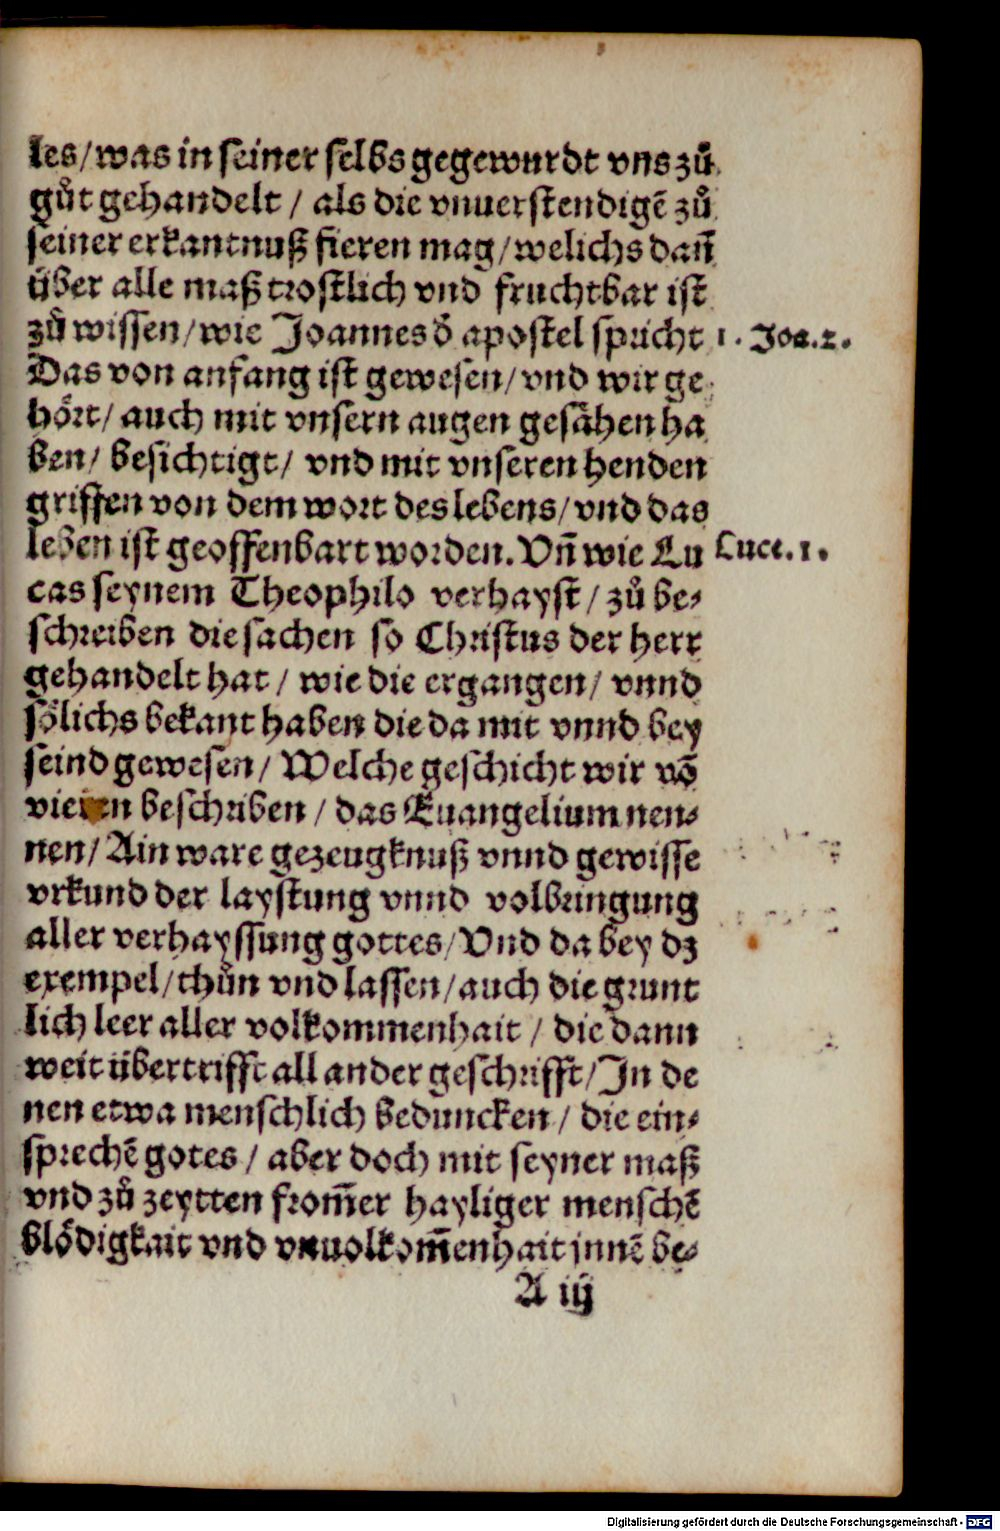 les/was in seiner selbs gegewurdt vns zuͦ
guͦt gehandelt / als die vnuerstendigē zuͦ
seiner erkantnuß fieren mag/welichs dañ
über alle maß trostlich vnd fruchtbar ist
zuͦ wissen/wie Joannes d̄ apostel spricht 1. Joa.1.
Das von anfang ist gewesen/vnd wir ge
hört/ auch mit vnsern augen gesähen ha
ben/ besichtigt/ vnd mit vnseren henden
griffen von dem wort des lebens/vnd das
leben ist geoffenbart worden. Vñ wie Lu Luce.1.
cas seynem Theophilo verhayst/ zuͦ be⸗
schreiben die sachen so Christus der herr
gehandelt hat / wie die ergangen/ vnnd
sölichs bekant haben die da mit vnnd bey
seind gewesen/ Welche geschicht wir vō
vieren beschriben / das Euangelium nen⸗
nen/ Ain ware gezeugknuß vnnd gewisse
vrkund der laystung vnnd volbringung
aller verhayssung gottes/Vnd da bey dz
exempel/thuͦn vnd lassen/auch die grunt
lich leer aller volkommenhait / die dann
weit übertrifft all ander geschrifft/In de
nen etwa menschlich beduncken / die ein⸗
sprechē gotes / aber doch mit seyner maß
vnd zuͦ zeytten from̄er hayliger menschē
blödigkait vnd vnuolkom̄enhait jnnē be⸗
A iij
Digitalisierung gefördert durch die Deutsche Forschungsgemeinschaft - DFG